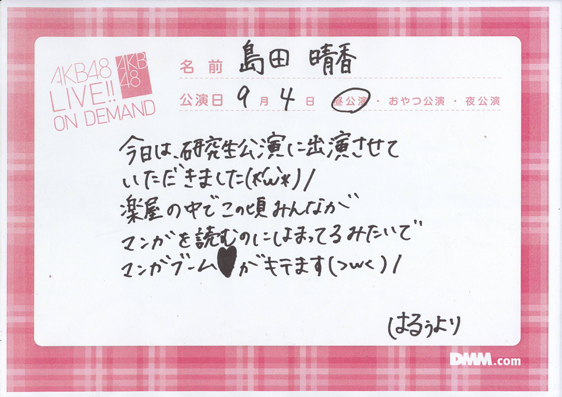 AKB48
LIVE!!
ON DEMAND
AKB
48
名前 島田 晴香
公演日 9月4日 昼公演・おやつ公演・夜公演
今日は、研究生公演に出演させて
いただきました(*'ω'*)/
楽屋の中でこの頃みんなが
マンガを読むのにはまってるみたいで
マンガブーム♥がキテます(>ω<)/
はるぅより
DMM.com